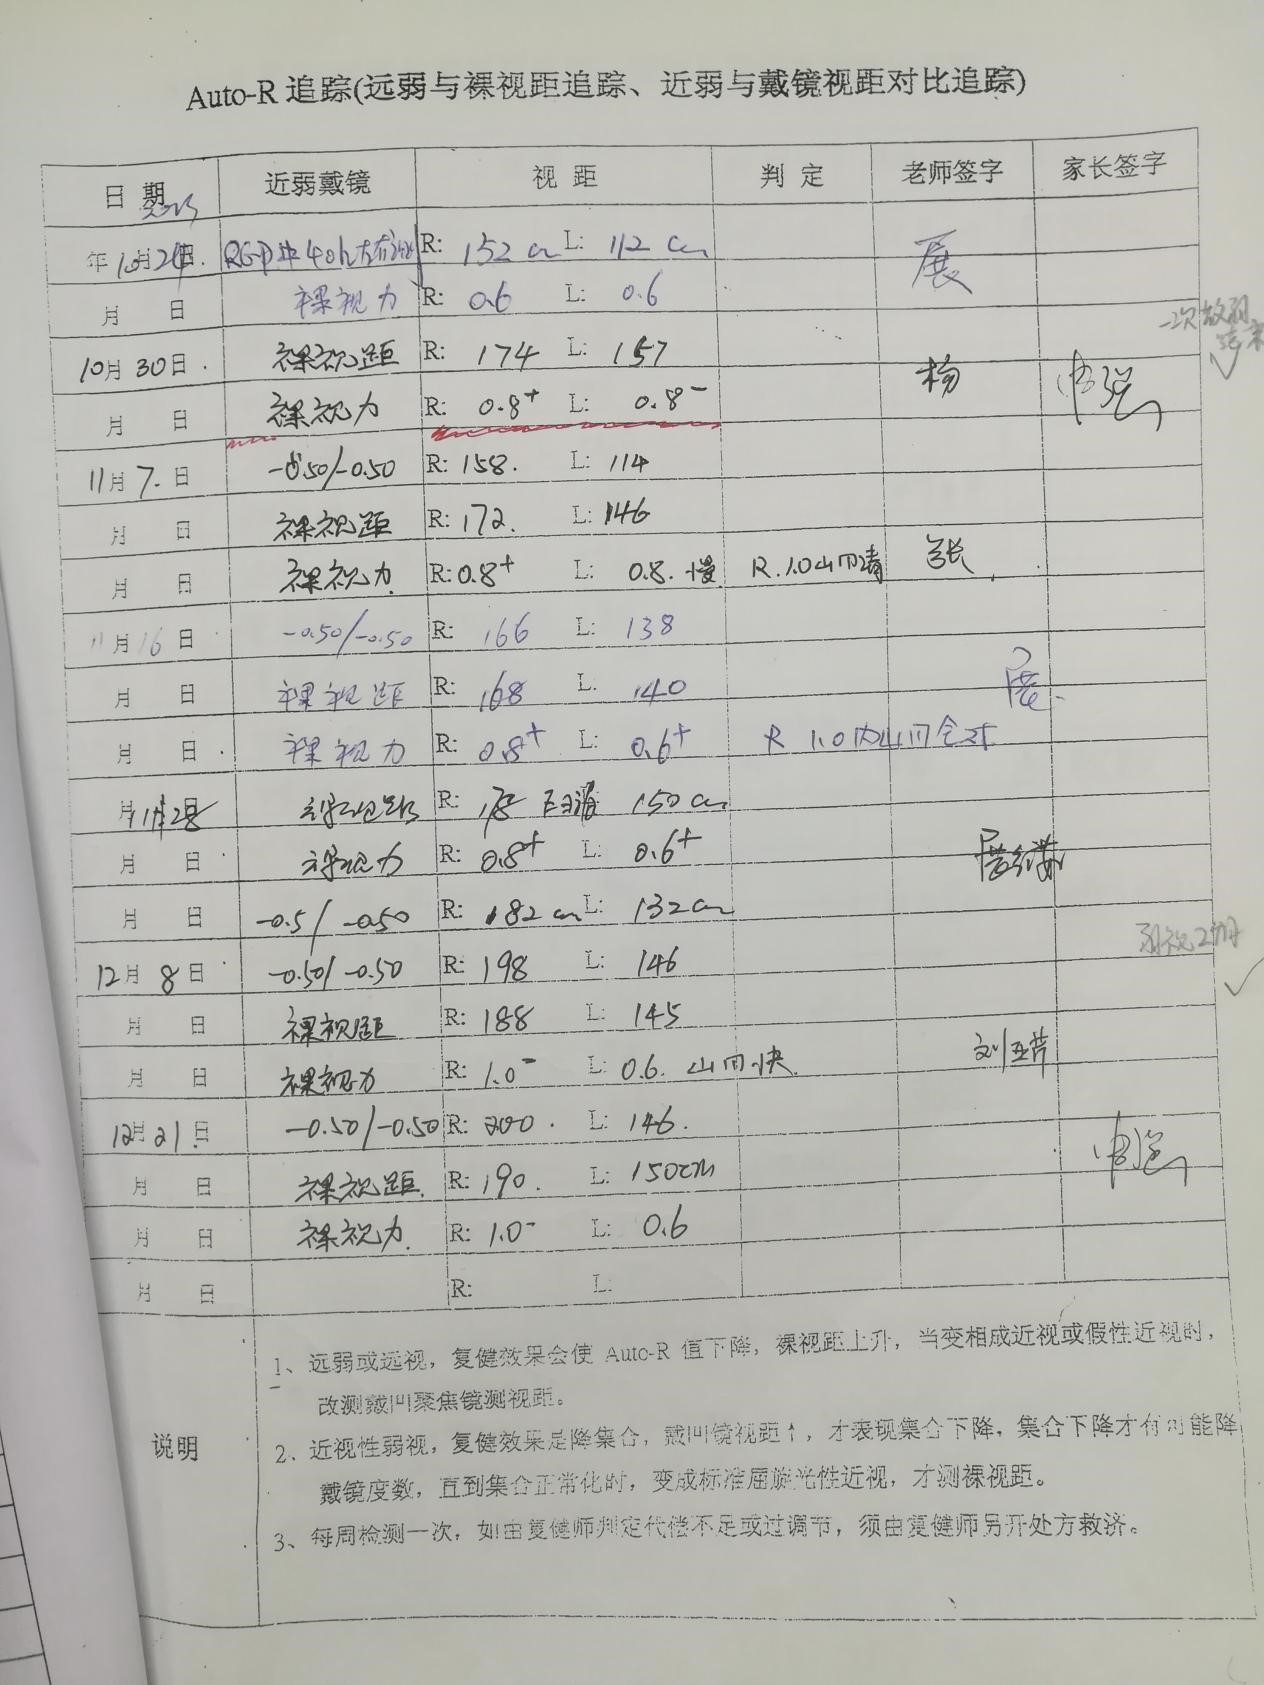 Auto-R 追踪(远弱与裸视距追踪、近弱与戴镜视距对比追踪)
日 期 近弱戴镜 视 距 判 定 老师签字 家长签字
年10月24日. RGP R: 152 cm L: 112 cm 展
月 日 裸视力 R: 0.6 L: 0.6
10月30日. 裸视距 R: 174 L: 157 杨
月 日 裸视力 R: 0.8⁺ L: 0.8⁻
11月7.日 -0.50/-0.50 R: 158. L: 114
月 日 裸视距 R: 172. L: 146
月 日 裸视力 R: 0.8⁺ L: 0.8.慢 R.1.0
11月16日 -0.50/-0.50 R: 166 L: 138
月 日 裸视距 R: 168 L: 140
月 日 裸视力 R: 0.8⁺ L: 0.6⁺ R 1.0
月 日 裸视距 R: L: 150 cm
月 日 裸视力 R: 0.8⁺ L: 0.6⁺
月 日 -0.5/-0.50 R: 182 cm L: 132 cm
12月8日 -0.50/-0.50 R: 198 L: 146
月 日 裸视距 R: 188 L: 145
月 日 裸视力 R: 1.0⁻ L: 0.6.
12月21.日 -0.50/-0.50 R: 200. L: 146.
月 日 裸视距. R: 190. L: 150cm
月 日 裸视力. R: 1.0⁻ L: 0.6
月 日 R: L:
说明
1、远弱或远视，复健效果会使 Auto-R 值下降，裸视距上升，当变相成近视或假性近视时，
改测戴凹聚焦镜测视距。
2、近视性弱视，复健效果是降集合，戴凹镜视距↑，才表现集合下降，集合下降才有可能降
戴镜度数，直到集合正常化时，变成标准屈旋光性近视，才测裸视距。
3、每周检测一次，如由复健师判定代偿不足或过调节，须由复健师另开处方救济。